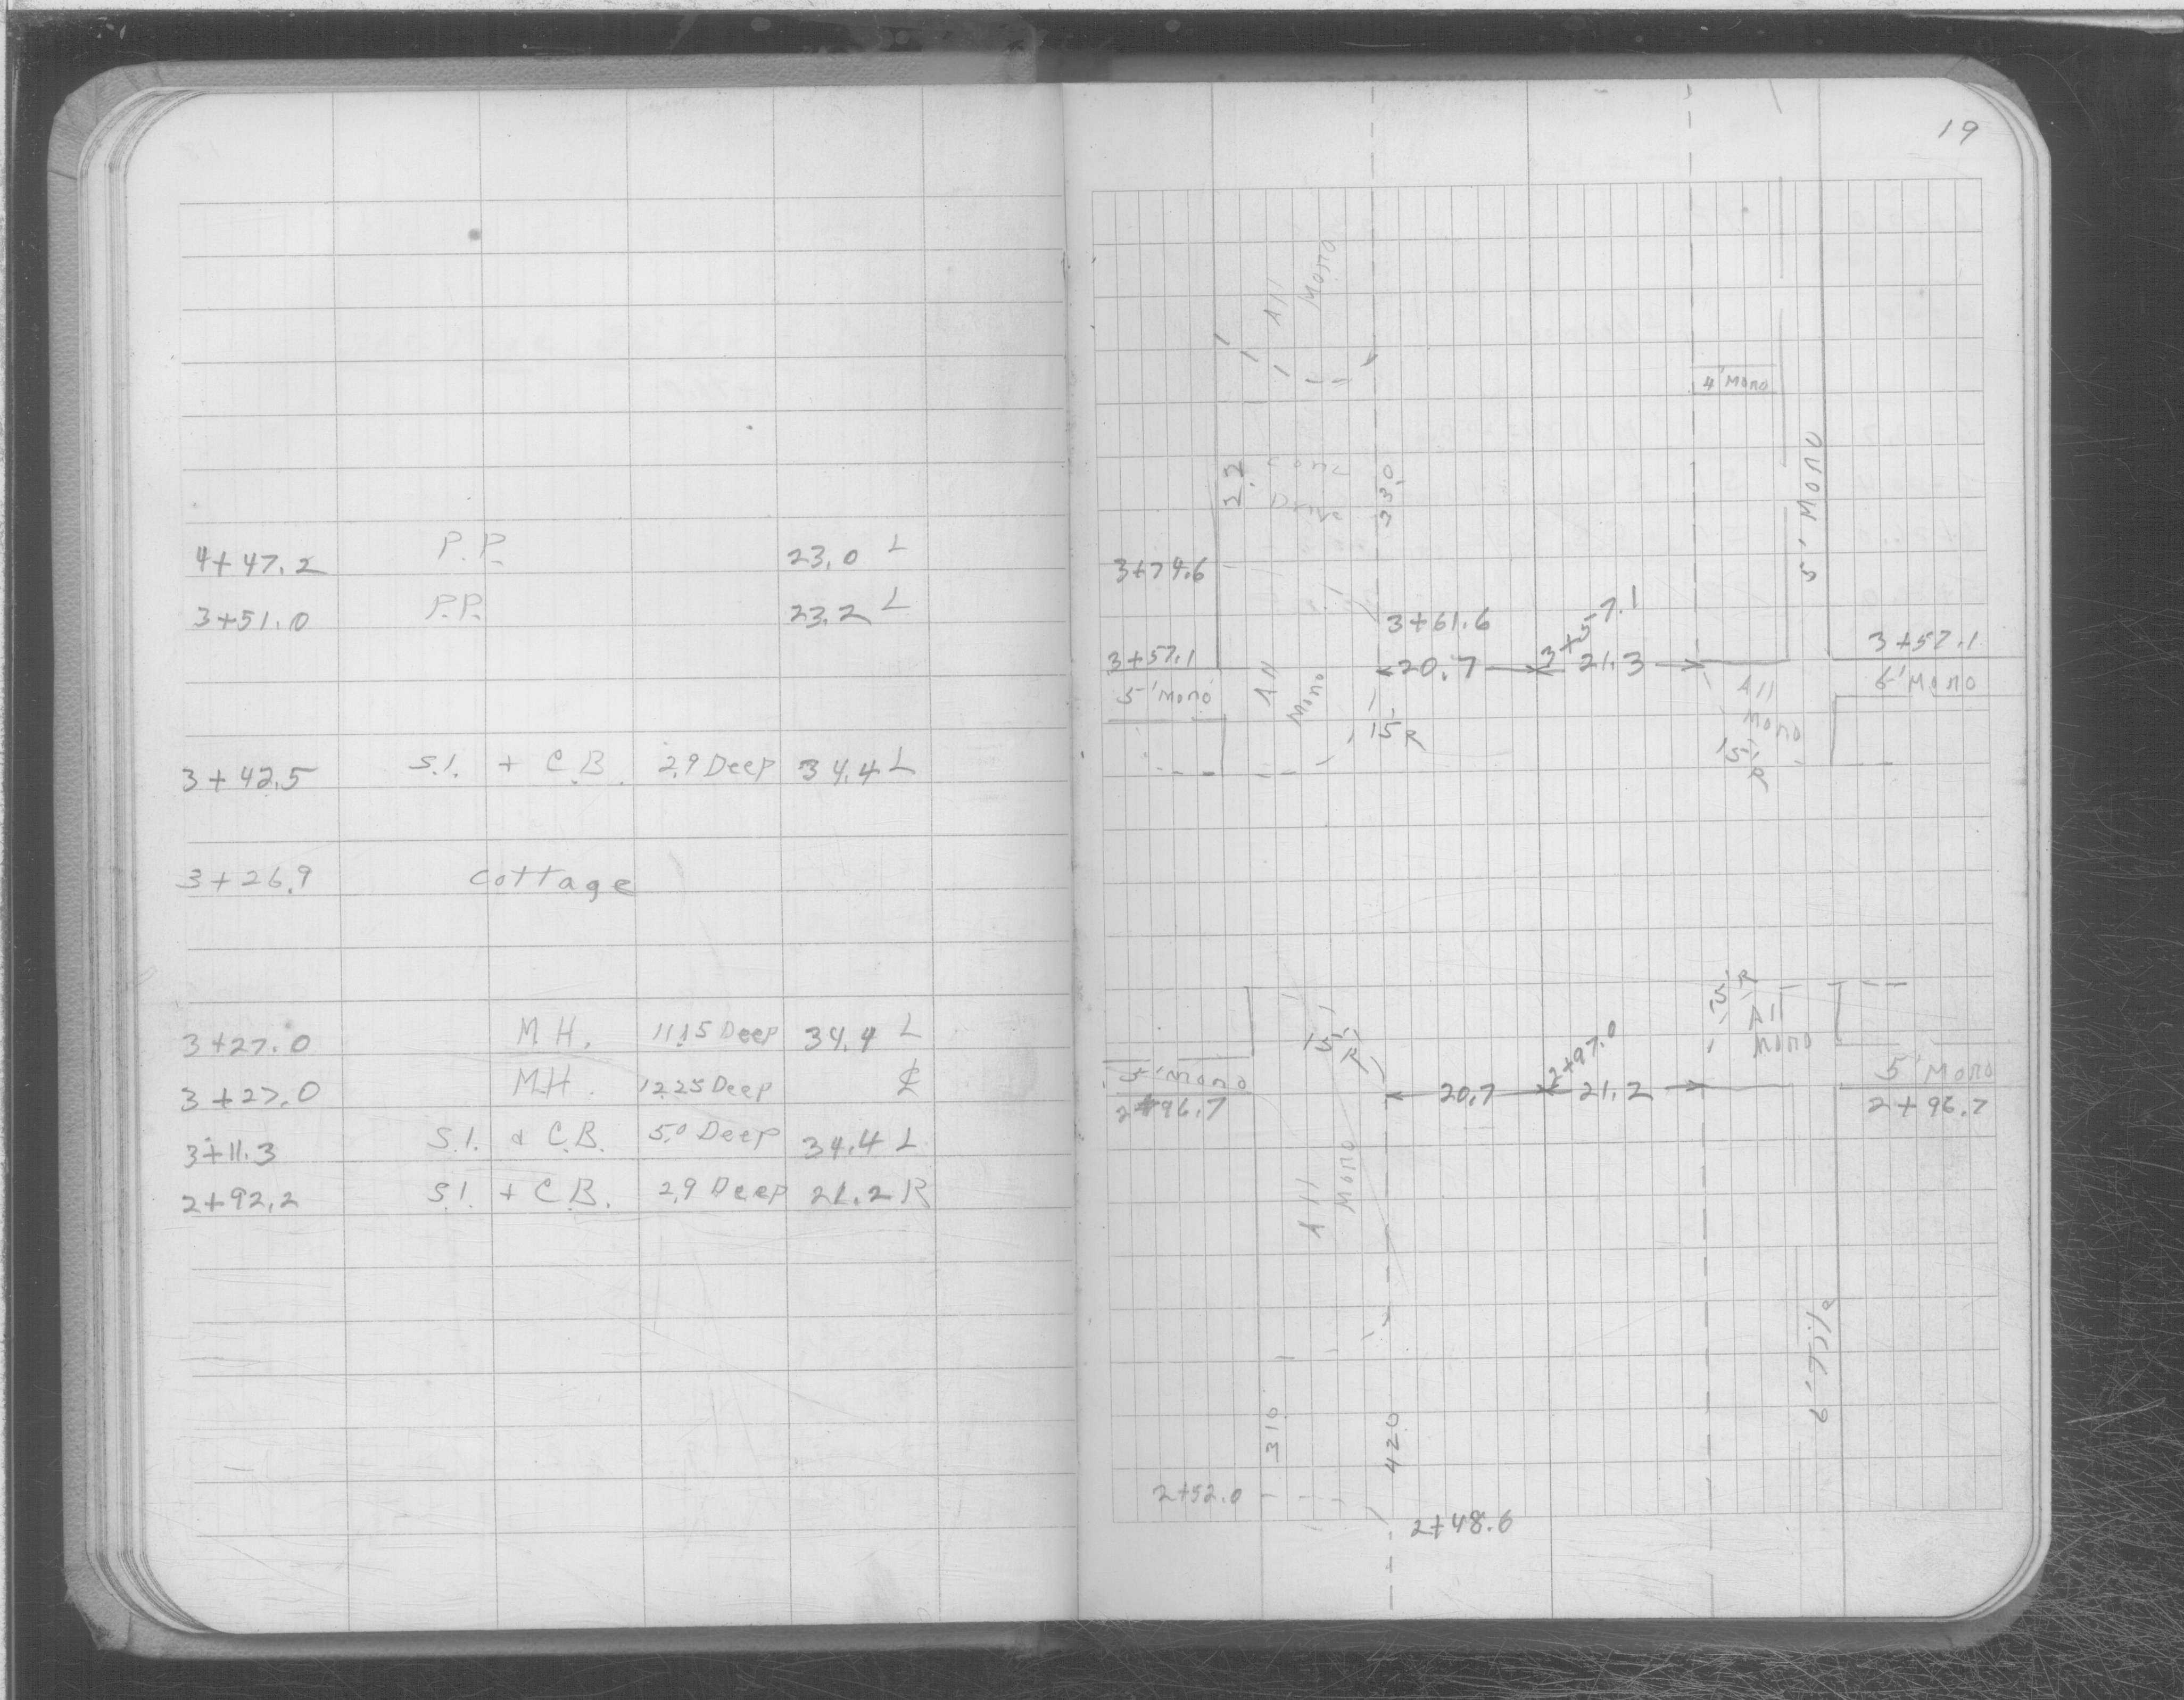 4+47.2 P.P. 23.0 L
3+51.0 P.P. 23.2 L
3+42.5 S.I. + C.B. 2.9 Deep 34.4 L
3+26.9 Cottage
3+27.0 M.H. 11.15 Deep 34.4 L
3+27.0 M.H. 12.25 Deep ℄
3+11.3 S.I. & C.B. 5.0 Deep 34.4 L
2+92.2 S.I. + C.B. 2.9 Deep 21.2 R
19
All
Mono
4' Mono
Conc
Drive
33.0
5' Mono
3+79.6
3+61.6
3+57.1
3+57.1
20.7
21.3
3+57.1
5' Mono
All
Mono
15' R
All
Mono
15' R
Mono
15' R
All
Mono
15' R
5' Mono
2+96.7
20.7
2+97.0
21.2
5' Mono
2+96.7
All
Mono
6' Tile
31.0
42.0
2+52.0
2+48.6